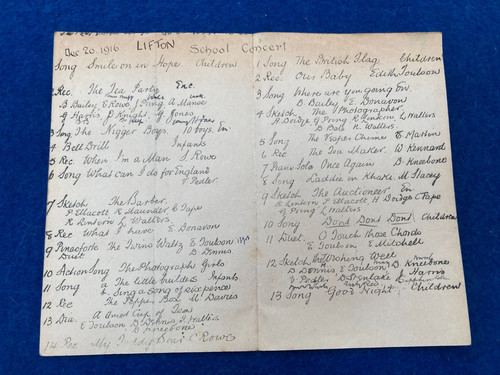 Dec 20. 1916 LIFTON School Concert
Song Smile on in Hope Children
2 Rec. The Tea Party Enc.
B Bailey E Rowe J Pring A Manse
G Harris P Knight G Jones
3 Song The Nigger Boys. 10 boys. En
4 Bell Drill Infants
5 Rec. When I'm a Man S. Rowe
6 Song What can I do for England
V Pedler.
7 Sketch The Barber.
P Ellacott R Maunder E Tape
R Lintern L Walters.
8 Rec What I have E. Donavon
9 Pianoforte The Twins Waltz E Toulson
Duet B Dennis
10 Action Song The Photograph Girls
11 Song a The little builders Infants
b Sing a song of sixpence
12 Rec The Paper Box M Davies
13 Dia. A Quiet Cup of Tea
E Toulson D Dennis I Walters
B Kneebone
14 Rec. My Teddy Bear C Rowe
1 Song The British Flag Children
2 Rec Our Baby Edith Toulson
3 Song Where are you going
B. Bailey E. Donavon
4 Sketch The Photographer
H Doidge G Pring R Jenkin L Walters
D Ball R. Walters
5 Song The Vesper Chimes E Martin
6 Rec The Tea Maker. W Kennard
7 Piano Solo Once Again B Kneebone
8 Song Laddie in Khaki M Stacey
9 Sketch The Auctioneer En
R Lintern P Ellacott H Doidge E Tape
G Pring L Walters
10 Song Dont Dont Dont Children
11 Duet. O Touch those Chords
E Toulson E Mitchell
12 Sketch Woking Well
D Dennis E Toulson B Kneebone
V Pedler Harris
13 Song Good Night Children